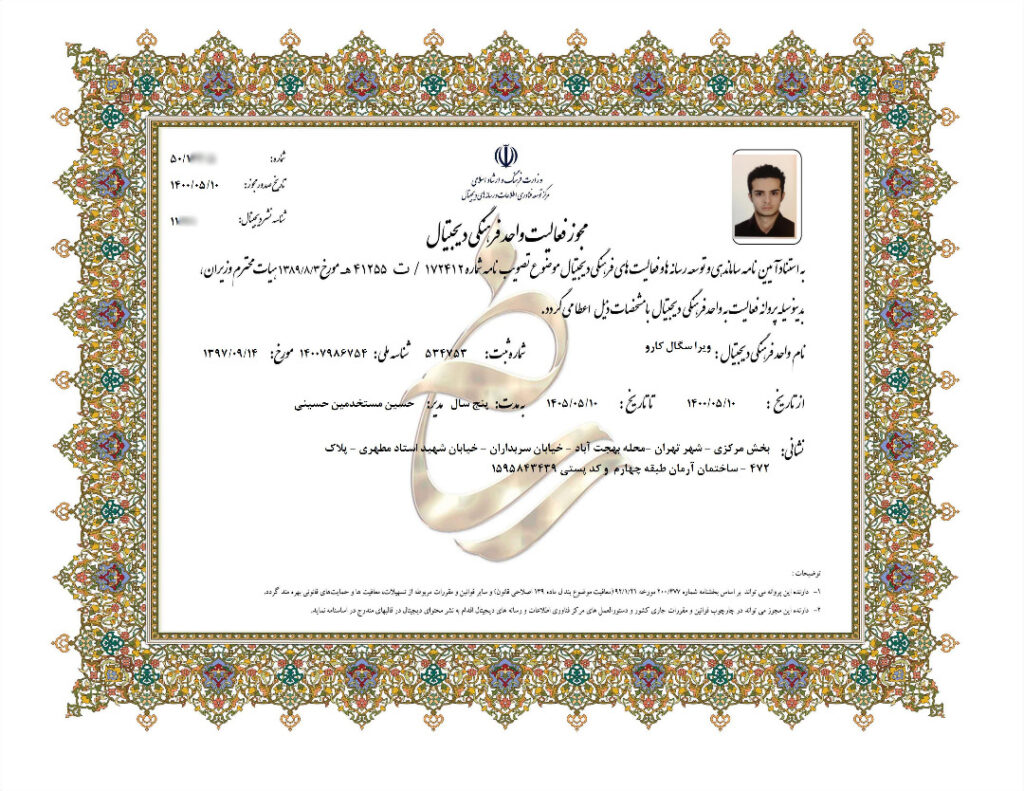 وزارت فرهنگ و ارشاد اسلامی
مرکز توسعه فناوری اطلاعات و رسانه های دیجیتال
شماره: ۵۰/۱
تاریخ صدور مجوز: ۱۴۰۰/۰۵/۱۰
شناسه نشر دیجیتال: ۱۱
مجوز فعالیت واحد فرهنگی دیجیتال
به استناد آیین نامه ساماندهی و توسعه رسانه ها و فعالیت های فرهنگی دیجیتال موضوع تصویب نامه شماره ۱۷۲۴۱۲ / ت ۴۱۲۵۵ هـ مورخ ۱۳۸۹/۸/۳ هیات محترم وزیران،
بدینوسیله پروانه فعالیت به واحد فرهنگی دیجیتال با مشخصات ذیل اعطا می گردد.
نام واحد فرهنگی دیجیتال : ویرا سگال کارو شماره ثبت: ۵۳۴۷۵۳ شناسه ملی: ۱۴۰۰۷۹۸۶۷۵۴ مورخ: ۱۳۹۷/۰۹/۱۴
از تاریخ : ۱۴۰۰/۰۵/۱۰ تا تاریخ : ۱۴۰۵/۰۵/۱۰ به مدت: پنج سال مدیر: حسین مستخدمین حسینی
نشانی: بخش مرکزی - شهر تهران -محله بهجت آباد - خیابان سربداران - خیابان شهید استاد مطهری - پلاک
۴۷۲ - ساختمان آرمان طبقه چهارم و کد پستی ۱۵۹۵۸۴۳۴۳۹
توضیحات:
۱- دارنده این پروانه می تواند بر اساس بخشنامه شماره ۲۰۰/۳۷۷ مورخه ۹۲/۱/۲۱(معافیت موضوع بند ل ماده ۱۳۹ اصلاحی قانون) و سایر قوانین و مقررات مربوطه از تسهیلات، معافیت ها و حمایت‌های قانونی بهره مند گردد.
۲- دارنده این مجوز می تواند در چارچوب قوانین و مقررات جاری کشور و دستورالعمل های مرکز فناوری اطلاعات و رسانه های دیجیتال اقدام به نشر محتوای دیجیتال در قالبهای مندرج در اساسنامه نماید.